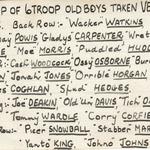 P OF GTROOP OLD BOYS TAKEN VE
Back Row:- "Wacker" WATKINS
POWIS "Gladys" CARPENTER "Wret
"Moe" MORRIS "Puddled" HUDD
"Cash" WOODCOCK "Ossy" OSBORNE "Bur
"Jonah" JONES "Orrible" HORGAN
COGHLAN. "Spud" HEDGES.
"Joe" DEAKIN "Old 'Un" DAVIS "Tich" D
"Tommy" WARDLE. "Corry" CORFIE
Row:- "Piper" SNOWBALL "Stabber" MAR
"Yanto" KING. "Johno" JOHNS